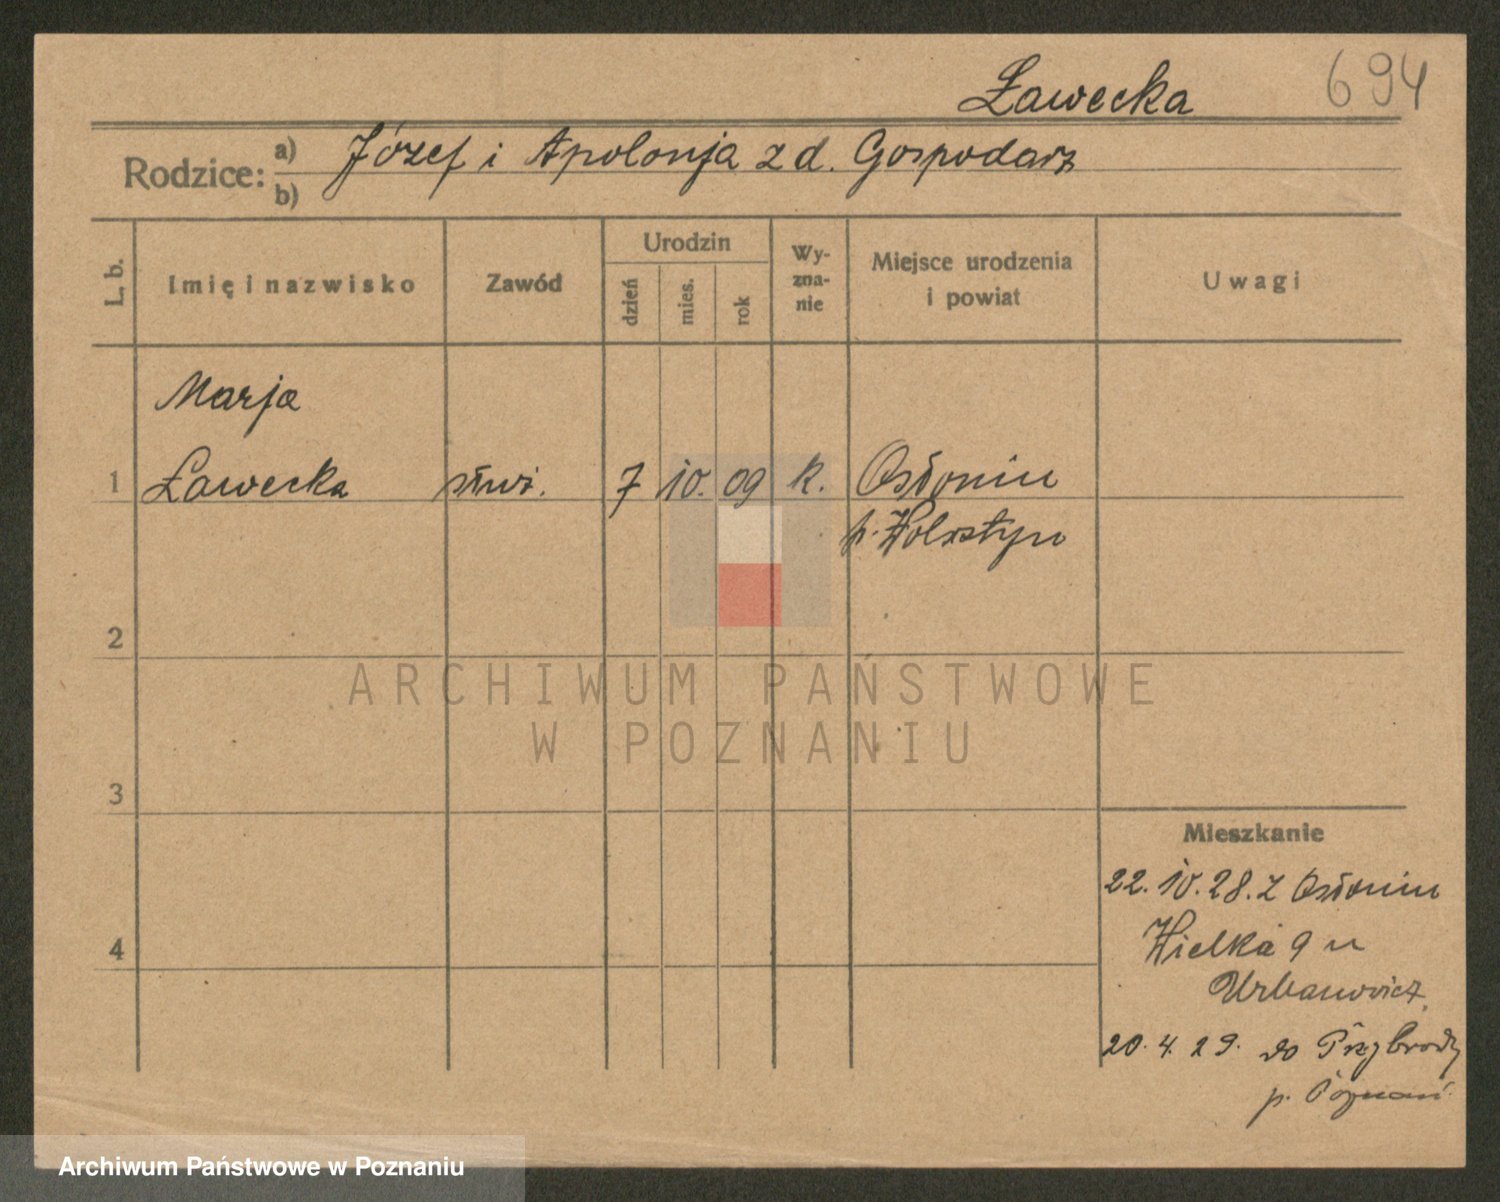 Ławecka 694
Rodzice: a) Józef i Apolonja z d. Gospodarz
b)
L. b.
Imię i nazwisko
Zawód
Urodzin
dzień
mies.
rok
Wy-
zna-
nie
Miejsce urodzenia
i powiat
Uwagi
Marja
1 Ławecka służ. 7 10. 09 k. Osłonin
p. Wolsztyn
2
3
4
Mieszkanie
22. 10. 28. z Osłonin
Wielka 9 u
Urbanowicz
20. 4. 29. do Przybrody
p. Poznań
ARCHIWUM PAŃSTWOWE
W POZNANIU
Archiwum Państwowe w Poznaniu